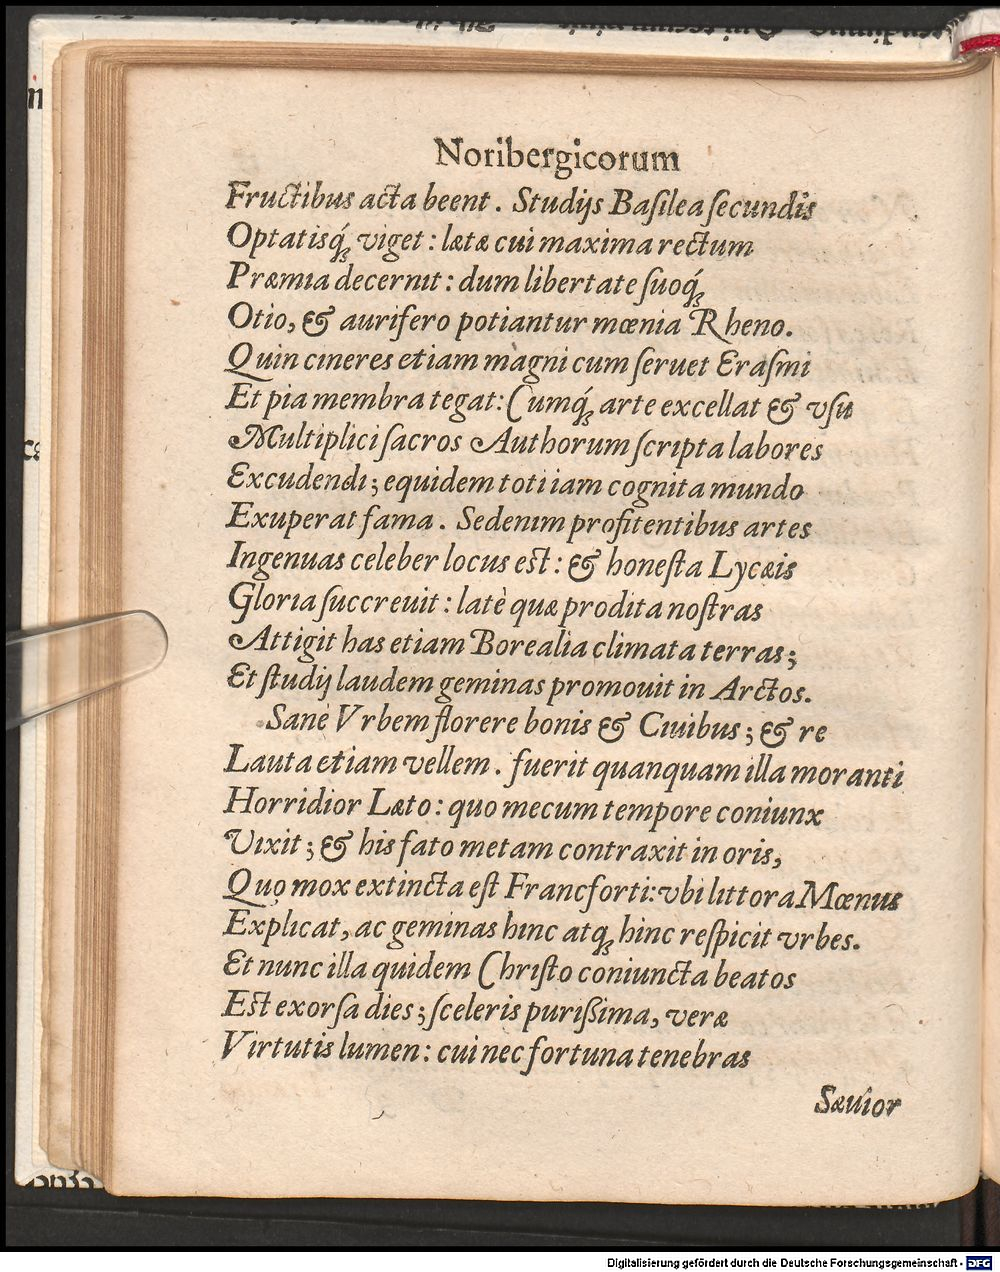 Noribergicorum
Fructibus acta beent. Studijs Basilea secundis
Optatisq́ꝫ viget: lætæ cui maxima rectum
Præmia decernit: dum libertate suoq́ꝫ
Otio, & aurifero potiantur mœnia Rheno.
Quin cineres etiam magni cum seruet Erasmi
Et pia membra tegat: Cumq́ꝫ arte excellat & vsu
Multiplici sacros Authorum scripta labores
Excudendi; equidem toti iam cognita mundo
Exuperat fama. Sed enim profitentibus artes
Ingenuas celeber locus est: & honesta Lycæis
Gloria succreuit: latè quæ prodita nostras
Attigit has etiam Borealia climata terras;
Et studij laudem geminas promouit in Arctos.
Sanè Vrbem florere bonis & Ciuibus; & re
Lauta etiam vellem. fuerit quanquam illa moranti
Horridior Læto: quo mecum tempore coniunx
Vixit; & his fato metam contraxit in oris,
Quo mox extincta est Francforti: vbi littora Mœnus
Explicat, ac geminas hinc atqꝫ hinc respicit vrbes.
Et nunc illa quidem Christo coniuncta beatos
Est exorsa dies; sceleris purissima, veræ
Virtutis lumen: cui nec fortuna tenebras
Sæuior
Digitalisierung gefördert durch die Deutsche Forschungsgemeinschaft - DFG